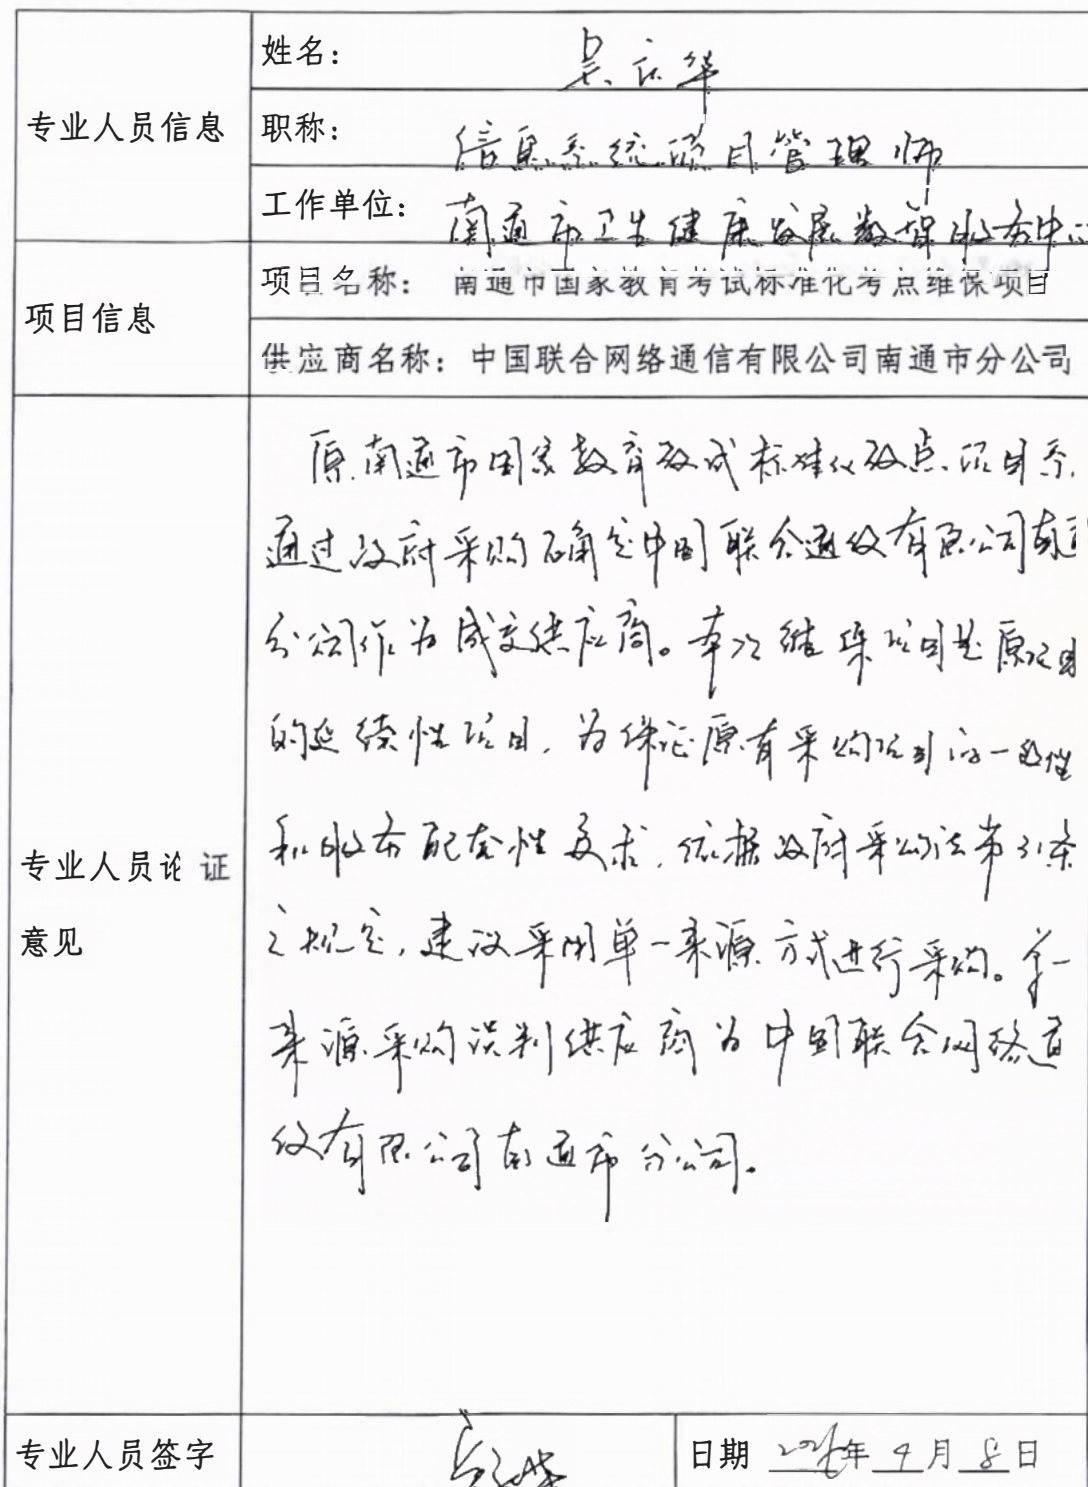 专业人员信息
姓名: 吴庆华
职称: 信息系统项目管理师
工作单位: 南通市卫生健康发展数据服务中心
项目信息
项目名称: 南通市国家教育考试标准化考点维保项目
供应商名称: 中国联合网络通信有限公司南通市分公司
专业人员论证
意见
原南通市国家教育考试标准化考点项目系
通过政府采购确定中国联合通信有限公司南通
分公司作为成交供应商。本次维保项目是原项目
的延续性项目,为保证原有采购项目的一致性
和服务配套性要求,依据政府采购法第31条
之规定,建议采用单一来源方式进行采购。单一
来源采购谈判供应商为中国联合网络通
信有限公司南通市分公司。
专业人员签字
日期 年 4 月 8 日